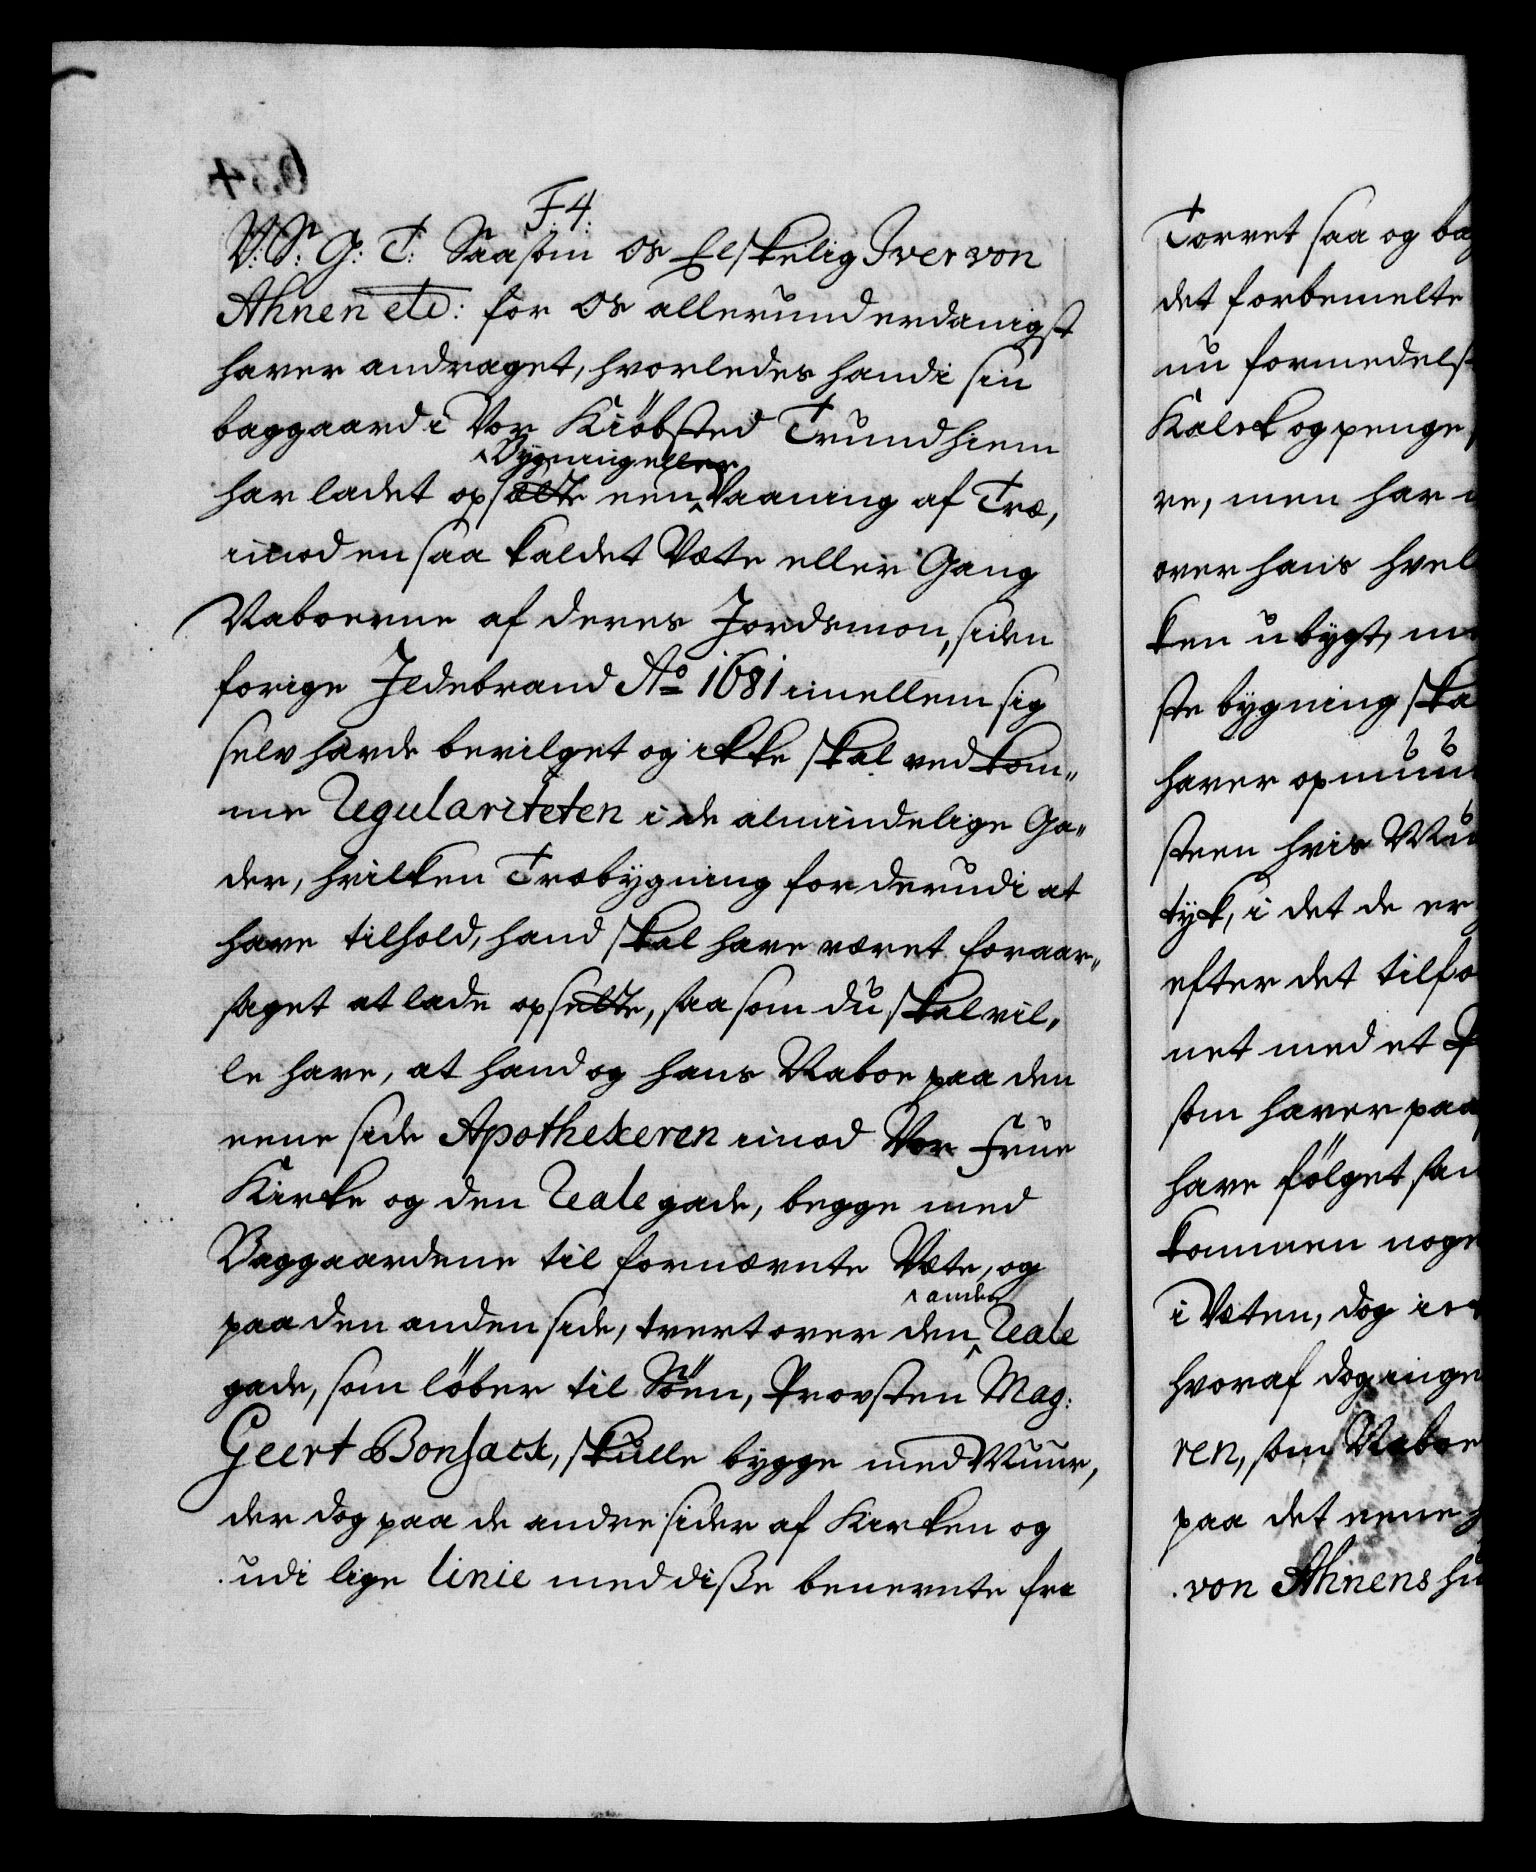 F: 4.
V: S: G: T: Saasom Os Elskelig Iver von
Ahnen etc: for Os allerunderdanigst
haver andraget, hvorledes hand i sin
baggaard i Vor Kiöbsted Trundhiem
Bygning eller
har ladet opsætte een Vaaning af Træ,
imod en saa kaldet Væte eller Gang
Naboerne af deres Jordsmon, siden
forige Ildebrand Ao 1681 imellem sig
selv hafde bevilget og ikke skal vedkom„
me Regulariteten i de almindelige Ga„
der, hvilken Træbygning for derudi at
have tilhold, hand skal have været foraar„
saget at lade opsette, saasom du skal vil„
le have, at hand og hans Naboe paa den
eene side Apothekeren imod Vor Frue
Kirke og den Reale gade, begge med
Baggaardene til fornævnte Væte, og
anden
paa den anden side, tvert over den Reale
gade, som löber til Söen, Provsten Mag:
Geert Bonsack, skulle bygge med Muur,
der dog paa de andre sider af Kirken og
udi lige linie med disse benevnte fra
Torvet saa og bag
det forbemelte
nu formedelst
Kalck og penge,
re, men har
over hans hvel
ken ubygt, m
ste bygning ska
haver opmuu
steen hvis Mu
tyk, i det de er
efter det tilfo
net med et
som haver paa
have fölget sa
kommen noge
i Væten, dog
hvoraf dog inge
ren, som Naboe
paa det eene
von Ahnens hu